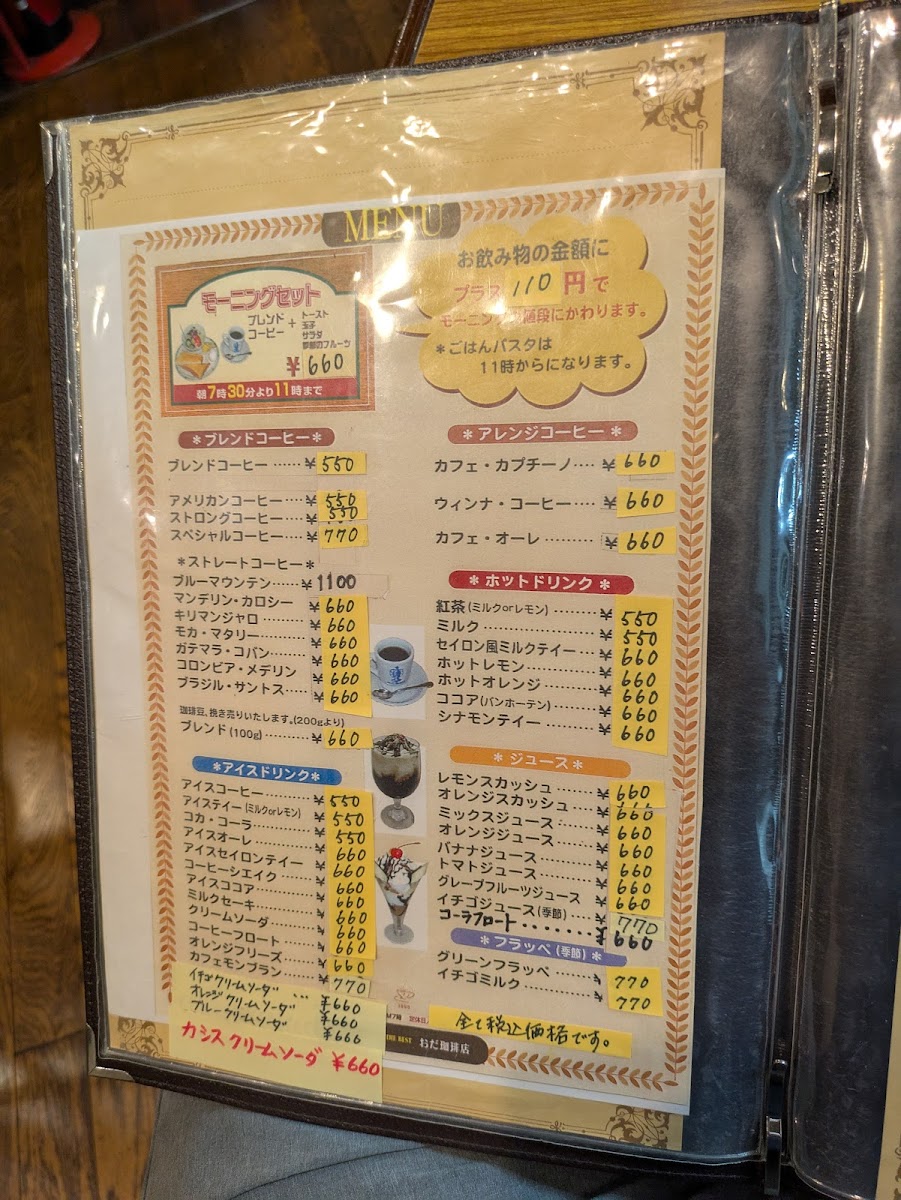 MENU
モーニングセット
ブレンドコーヒー + トースト 玉子 サラダ 季節のフルーツ
¥660
朝7時30分より11時まで
お飲み物の金額に
プラス110円で
モーニングの値段にかわります。
*ごはんパスタは
11時からになります。
*ブレンドコーヒー*
ブレンドコーヒー……¥550
アメリカンコーヒー……¥550
ストロングコーヒー……¥550
スペシャルコーヒー……¥770
*ストレートコーヒー*
ブルーマウンテン……¥1100
マンデリン・カロシー ¥660
キリマンジャロ……¥660
モカ・マタリー……¥660
ガテマラ・コバン……¥660
コロンビア・メデリン ¥660
ブラジル・サントス……¥660
珈琲豆、挽き売りいたします。(200gより)
ブレンド(100g)……¥660
*アイスドリンク*
アイスコーヒー……¥550
アイスティー(ミルクorレモン) ¥550
コカ・コーラ……¥550
アイスオーレ……¥660
アイスセイロンティー……¥660
コーヒーシェイク……¥660
アイスココア……¥660
ミルクセーキ……¥660
クリームソーダ……¥660
コーヒーフロート……¥660
オレンジフリーズ……
カフェモンブラン……¥770
イチゴクリームソーダ … ¥660
オレンジクリームソーダ ¥660
ブルークリームソーダ ¥660
カシスクリームソーダ ¥660
*アレンジコーヒー*
カフェ・カプチーノ…¥660
ウィンナ・コーヒー…¥660
カフェ・オーレ……¥660
*ホットドリンク*
紅茶(ミルクorレモン)……¥550
ミルク……¥550
セイロン風ミルクティー……¥660
ホットレモン……¥660
ホットオレンジ……¥660
ココア(バンホーテン)……¥660
シナモンティー……¥660
*ジュース*
レモンスカッシュ……¥660
オレンジスカッシュ……¥660
ミックスジュース……¥660
オレンジジュース……¥660
バナナジュース……¥660
トマトジュース……¥660
グレープフルーツジュース ¥660
イチゴジュース(季節)……¥770
コーラフロート………¥660
*フラッペ(季節)*
グリーンフラッペ……¥770
イチゴミルク……¥770
全て税込価格です。
THE BEST おだ珈琲店